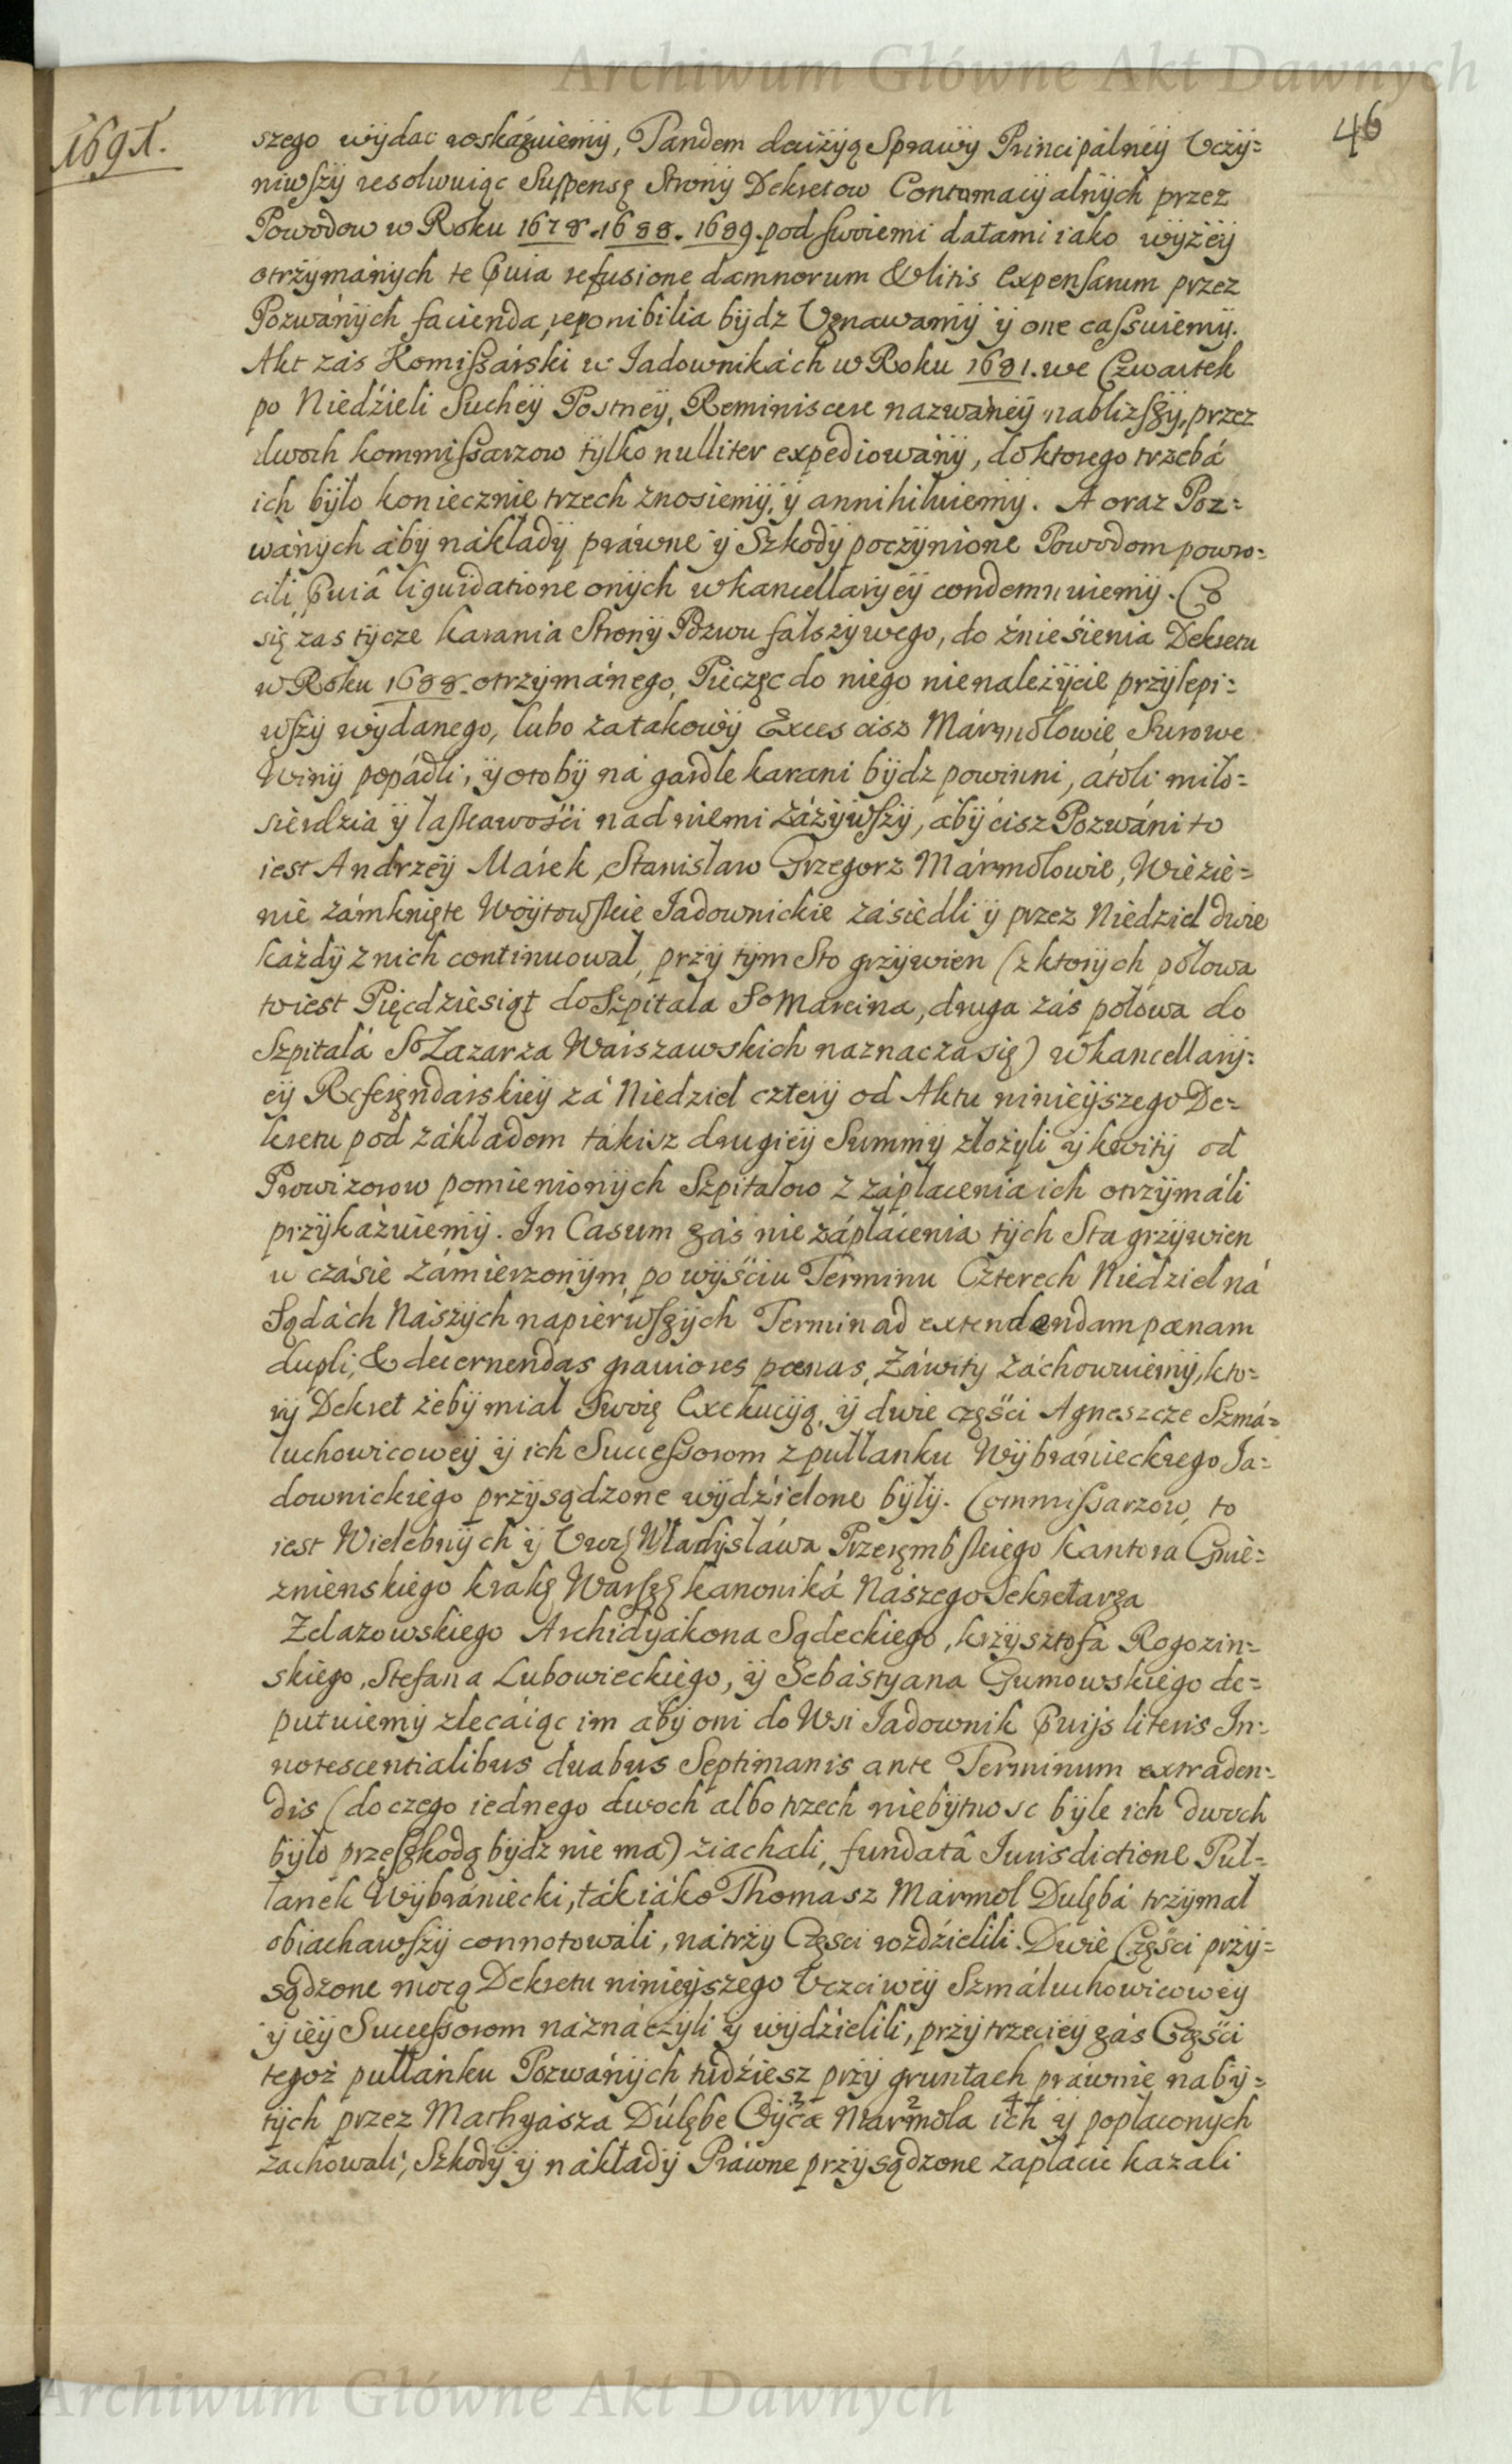 Archiwum Główne Akt Dawnych
1691.
46
szego wÿdac roskázuiemÿ, Pandem decizÿą Sprawÿ Principálneÿ Vczÿ=
niwszÿ resolwuiąc Suspensę Stronÿ Dekretow Contumacÿalnÿch przez
Powodow w Roku 1678. 1688. 1689. pod swoiemi datami iako wÿżeÿ
otrzÿmánÿch te prauia refusione damnorum & litis expensarum przez
Pozwánÿch facienda, reponibilia bÿdz Vznawamÿ ÿ one cassuiemÿ.
Akt zás Komissárski w Jadownikách w Roku 1681. we Czwartek
po Niedźieli Sucheÿ Postneÿ, Reminiscere nazwáneÿ nablizszÿ, przez
dwoch kommissarzow tÿlko nulliter expediowánÿ, do ktorego trzebá
ich bÿło koniecznie trzech znosiemÿ, ÿ annihiluiemÿ. A oraz Poz=
wánÿch ábÿ nákładÿ práwne ÿ Szkodÿ poczÿnione Powodom powro=
cili prauiâ liquidatione onÿch w kancellarÿeÿ condemnuiemÿ. Co
się zas tÿcze karania Stronÿ Pozwu fałszÿwego, do znieśienia Dekretu
w Roku 1688. otrzÿmánego, Pieczęc do niego nienależÿcie przÿlepi=
wszÿ wÿdanego, lubo za takowÿ Exces cisz Mármołowie, Surowe
Winÿ popádli, ÿ oto bÿ ná gardle karani bÿdz powinni, átoli miło=
sierdzia ÿ łaskawości nad niemi záżÿwszÿ, ábÿ cisz Pozwáni to
iest Andrzeÿ Márek, Stanisław Grzegorz Mármołowie, Wiezie=
nie zámknięte Woÿtowskie Jadownickie zásiedli ÿ przez Niedziel dwie
każdÿ z nich continuował, przÿ tÿm Sto grzÿwien (z ktorÿch połowa
to iest Pięcdziesiąt do Szpitala So Marcina, druga zás połowa do
Szpitalá So Łazarza Warszawskich naznacza się) w kancellarÿ=
eÿ Referęndarskieÿ zá Niedziel czterÿ od Aktu ninieÿszego De=
kretu pod zákładem tákisz drugieÿ Summÿ złożÿli ÿ kwitÿ od
Prowizorow pomienionÿch Szpitalow z zápłacenia ich otrzÿmáli
przÿkázuiemÿ. In Casum zás nie zápłácenia tÿch Sta grzÿwien
w czásie zámierzonÿm, po wÿściu Terminu Czterech Niedziel ná
Sądách Nászÿch napierwszÿch Termin ad extendendam pœnam
dupli, & decernendas grauiores pœnas, Záwitÿ záchowuiemÿ, kto=
rÿ Dekret żebÿ miał Swoię Exekucÿą, ÿ dwie części Agneszcze Szmá=
luchowicoweÿ ÿ ich Successorom z pułłanku Wÿbránieckiego Ja=
downickiego przÿsądzone wÿdźielone bÿłÿ. Commissarzow, to
iest Wielebnÿch ÿ Vrodz Władÿsłáwa Przerębskiego kantora Gnie=
znienskiego krakz Warszz kanoniká Nászego Sekretarza
Zelazowskiego Archidÿakona Sądeckiego, krzÿsztofa Rogozin=
skiego, Stefana Lubowieckiego, ÿ Sebástÿana Gumowskiego de=
putuiemÿ zlecáiąc im abÿ oni do Wsi Jadownik prauijs literis In=
notescentialibus duabus Septimanis ante Terminum extraden=
dis (do czego iednego dwoch albo trzech niebÿtnosc bÿle ich dwoch
bÿło przeszkodą bÿdz nie ma) ziachali, fundatâ Iurisdictione Puł=
łanek Wÿbrániecki, ták iáko Thomasz Mármoł Dulębá trzÿmał
obiachawszÿ connotowali, ná trzÿ Częsci rozdźielili. Dwie Części przÿ=
sądzone mocą Dekretu ninieÿszego Vczciweÿ Szmáluchowicoweÿ
ÿ ieÿ Successorom náznáczÿli ÿ wÿdźielili, przÿ trzecieÿ zás Części
tegoż pułłánku Pozwánÿch tudźiesz przÿ gruntach práwnie nabÿ=
tÿch przez Mathÿasza Dulębe Oÿca Marmoła ich ÿ popłaconÿch
záchowali, Szkodÿ ÿ nákładÿ Práwne przÿsądzone zapłacic kazali
Archiwum Główne Akt Dawnych